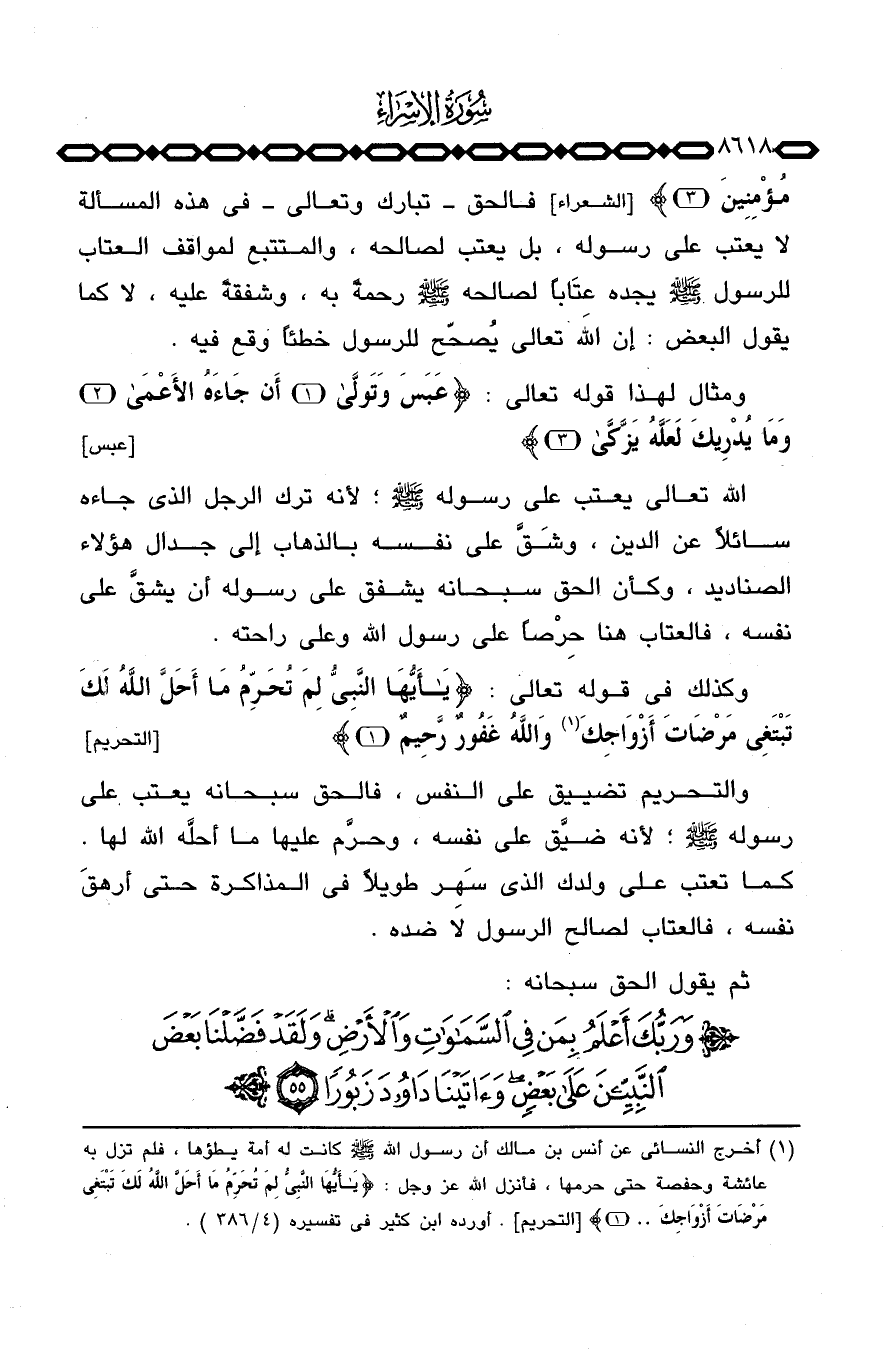 سُورَةُ الإِسْرَاءِ
٨٦١٨
مُؤْمِنِينَ (٣)﴾ [الشعراء] فالحق - تبارك وتعالى - فى هذه المسألة
لا يعتب على رسوله ، بل يعتب لصالحه ، والمتتبع لمواقف العتاب
للرسول ﷺ يجده عتاباً لصالحه ﷺ رحمةً به ، وشفقةً عليه ، لا كما
يقول البعض : إن الله تعالى يُصحّح للرسول خطئاً وقع فيه .
ومثال لهذا قوله تعالى : ﴿عَبَسَ وَتَوَلَّىٰ (١) أَن جَاءَهُ الأَعْمَىٰ (٢)
وَمَا يُدْرِيكَ لَعَلَّهُ يَزَّكَّىٰ (٣)﴾ [عبس]
الله تعالى يعتب على رسوله ﷺ ؛ لأنه ترك الرجل الذى جاءه
سائلاً عن الدين ، وشَقَّ على نفسه بالذهاب إلى جدال هؤلاء
الصناديد ، وكأن الحق سبحانه يشفق على رسوله أن يشقَّ على
نفسه ، فالعتاب هنا حِرْصاً على رسول الله وعلى راحته .
وكذلك فى قوله تعالى : ﴿يَـٰأَيُّهَا النَّبِىُّ لِمَ تُحَرِّمُ مَا أَحَلَّ اللَّهُ لَكَ
تَبْتَغِى مَرْضَاتَ أَزْوَاجِكَ(١) وَاللَّهُ غَفُورٌ رَّحِيمٌ (١)﴾ [التحريم]
والتحريم تضييق على النفس ، فالحق سبحانه يعتب على
رسوله ﷺ ؛ لأنه ضيَّق على نفسه ، وحرَّم عليها ما أحلَّه الله لها .
كما تعتب على ولدك الذى سَهِر طويلاً فى المذاكرة حتى أرهقَ
نفسه ، فالعتاب لصالح الرسول لا ضده .
ثم يقول الحق سبحانه :
﴿وَرَبُّكَ أَعْلَمُ بِمَن فِي ٱلسَّمَـٰوَٰتِ وَٱلْأَرْضِۗ وَلَقَدْ فَضَّلْنَا بَعْضَ
ٱلنَّبِيِّـۧنَ عَلَىٰ بَعْضٍۖ وَءَاتَيْنَا دَاوُۥدَ زَبُورًا ٥٥﴾
(١) أخرج النسائى عن أنس بن مالك أن رسول الله ﷺ كانت له أمة يطؤها ، فلم تزل به
عائشة وحفصة حتى حرمها ، فأنزل الله عز وجل : ﴿يَـٰأَيُّهَا النَّبِىُّ لِمَ تُحَرِّمُ مَا أَحَلَّ اللَّهُ لَكَ تَبْتَغِى
مَرْضَاتَ أَزْوَاجِكَ .. (١)﴾ [التحريم] . أورده ابن كثير فى تفسيره (٣٨٦/٤) .